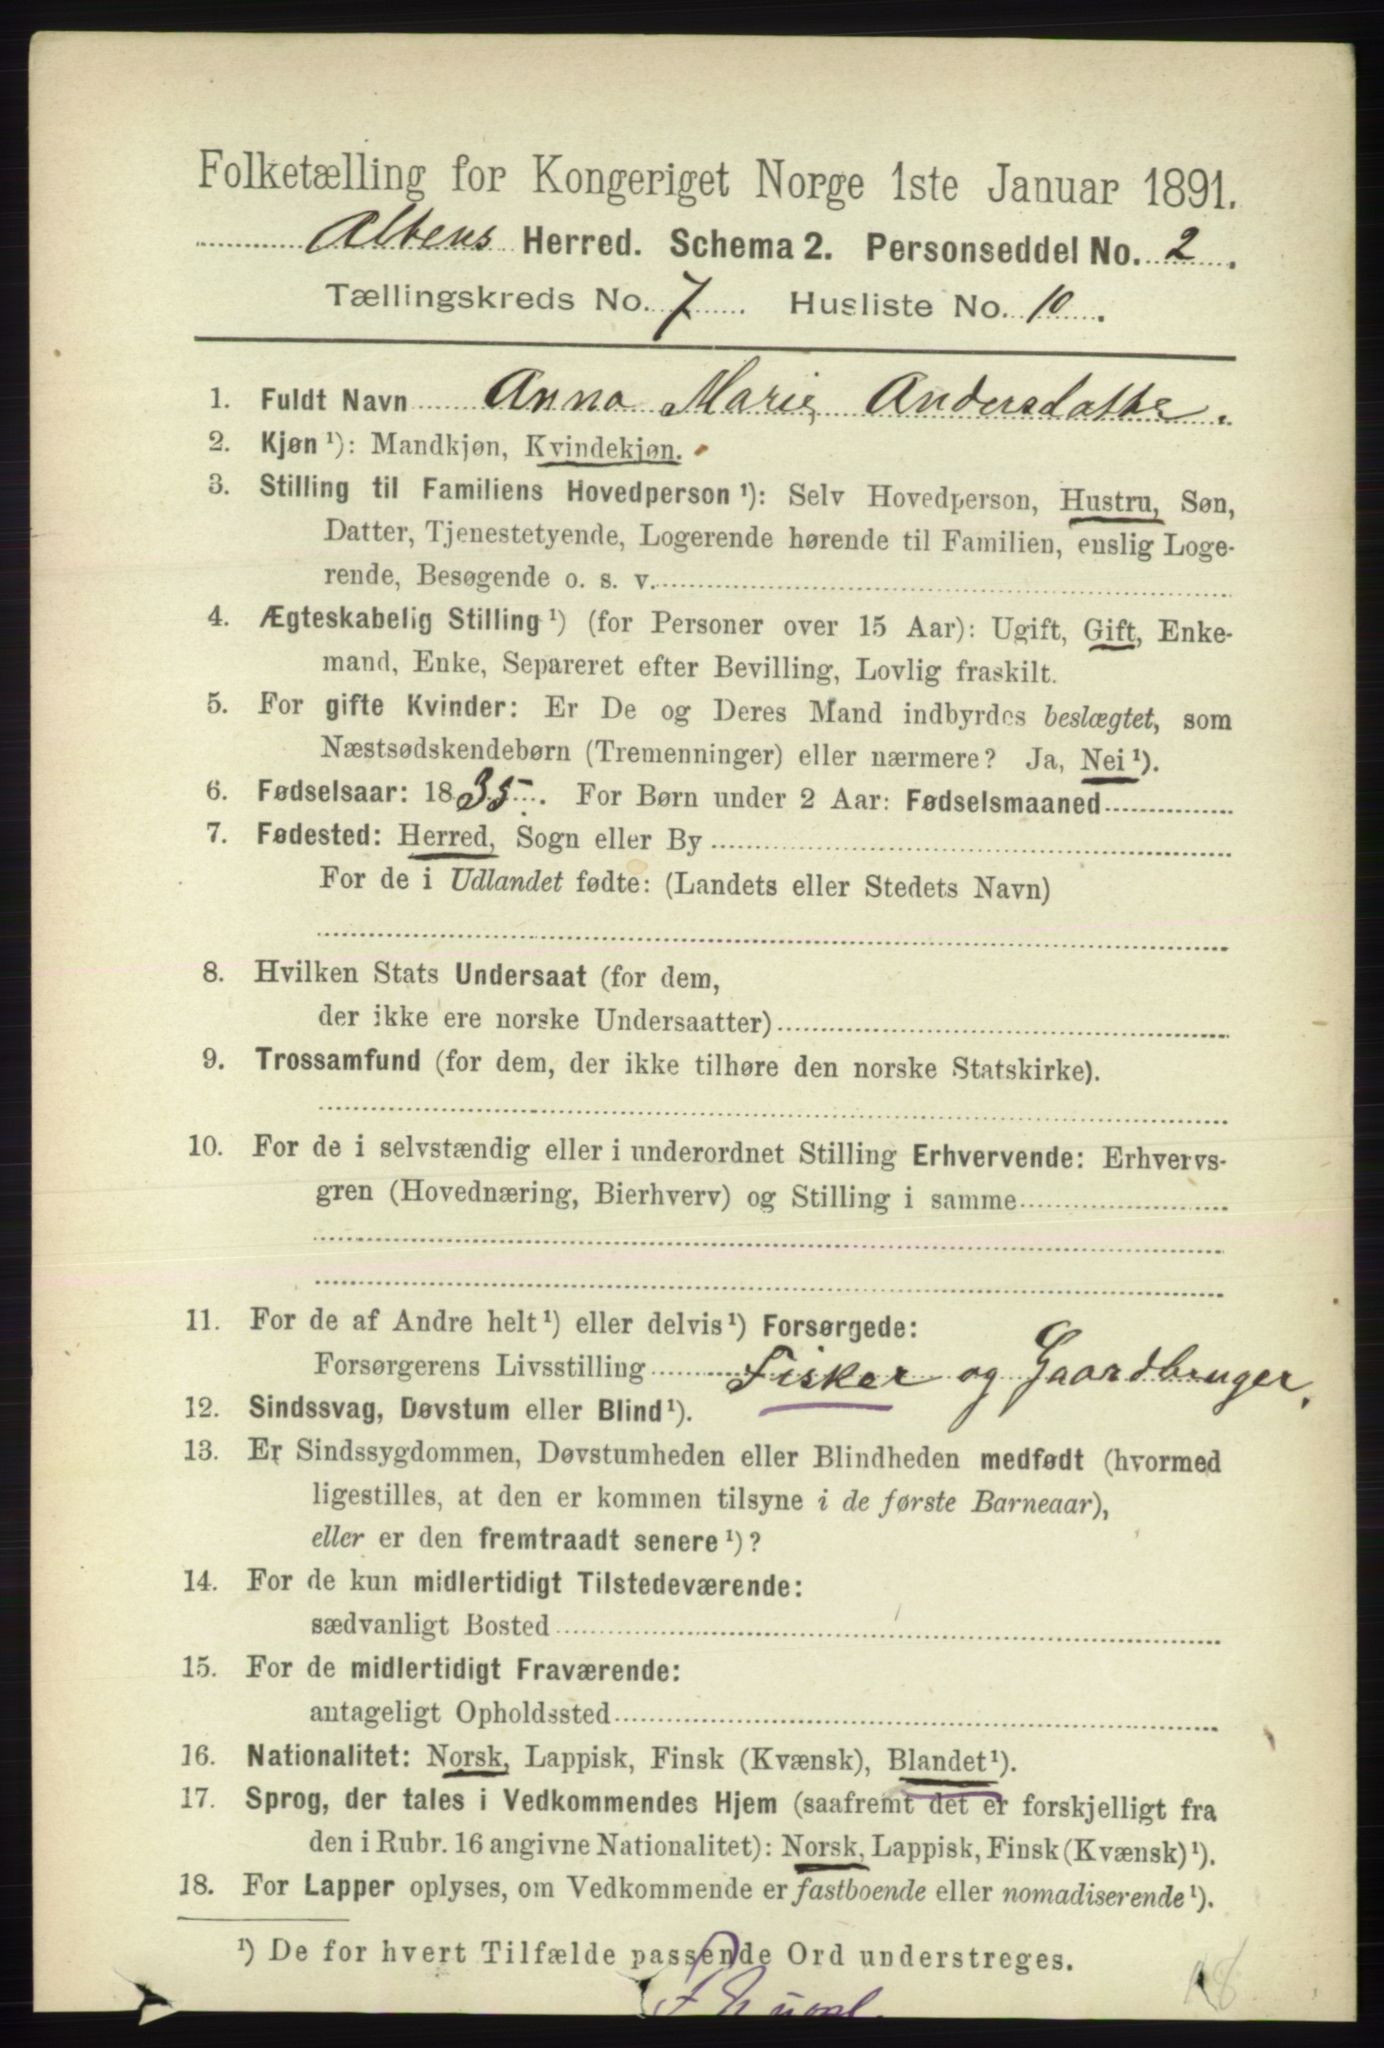 Folketælling for Kongeriget Norge 1ste Januar 1891.
Altens Herred. Schema 2. Personseddel No. 2.
Tællingskreds No. 7 Husliste No. 10.
1. Fuldt Navn Anna Marie Andersdatter.
2. Kjøn¹): Mandkjøn, Kvindekjøn.
3. Stilling til Familiens Hovedperson¹): Selv Hovedperson, Hustru, Søn,
Datter, Tjenestetyende, Logerende hørende til Familien, enslig Loge-
rende, Besøgende o. s. v.
4. Ægteskabelig Stilling¹) (for Personer over 15 Aar): Ugift, Gift, Enke-
mand, Enke, Separeret efter Bevilling, Lovlig fraskilt.
5. For gifte Kvinder: Er De og Deres Mand indbyrdes beslægtet, som
Næstsødskendebørn (Tremenninger) eller nærmere? Ja, Nei¹).
6. Fødselsaar: 1835. For Børn under 2 Aar: Fødselsmaaned
7. Fødested: Herred, Sogn eller By
For de i Udlandet fødte: (Landets eller Stedets Navn)
8. Hvilken Stats Undersaat (for dem,
der ikke ere norske Undersaatter)
9. Trossamfund (for dem, der ikke tilhøre den norske Statskirke).
10. For de i selvstændig eller i underordnet Stilling Erhvervende: Erhvervs-
gren (Hovednæring, Bierhverv) og Stilling i samme
11. For de af Andre helt¹) eller delvis¹) Forsørgede:
Forsørgerens Livsstilling Fisker og Gaardbruger.
12. Sindssvag, Døvstum eller Blind¹).
13. Er Sindssygdommen, Døvstumheden eller Blindheden medfødt (hvormed
ligestilles, at den er kommen tilsyne i de første Barneaar),
eller er den fremtraadt senere¹)?
14. For de kun midlertidigt Tilstedeværende:
sædvanligt Bosted
15. For de midlertidigt Fraværende:
antageligt Opholdssted
16. Nationalitet: Norsk, Lappisk, Finsk (Kvænsk), Blandet¹).
17. Sprog, der tales i Vedkommendes Hjem (saafremt det er forskjelligt fra
den i Rubr. 16 angivne Nationalitet): Norsk, Lappisk, Finsk (Kvænsk)¹).
18. For Lapper oplyses, om Vedkommende er fastboende eller nomadiserende¹).
¹) De for hvert Tilfælde passende Ord understreges.